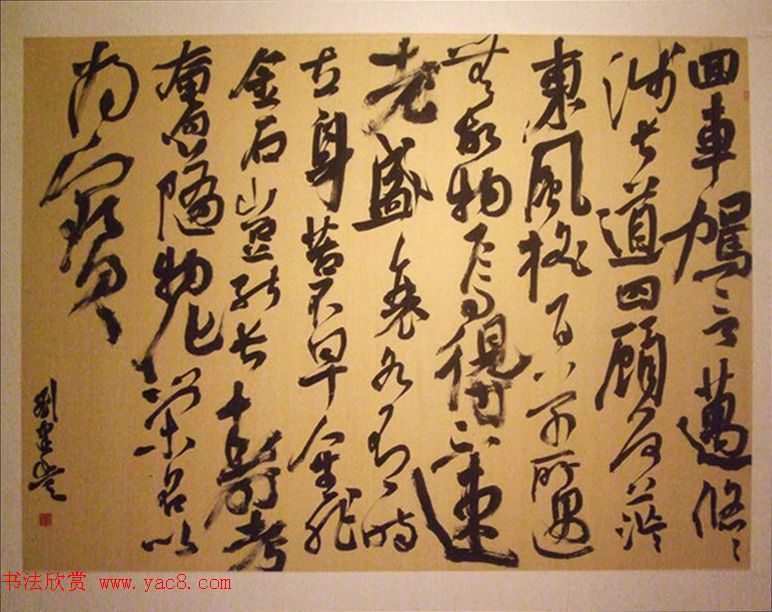 回車駕言邁悠〻
涉長道四顧何茫〻
東風搖百草所遇
無故物焉得不速
老盛衰各有時
立身苦不早人生非
金石豈能長壽考
奄忽隨物化榮名以
為寶
劉
书法欣赏 www.yac8.com